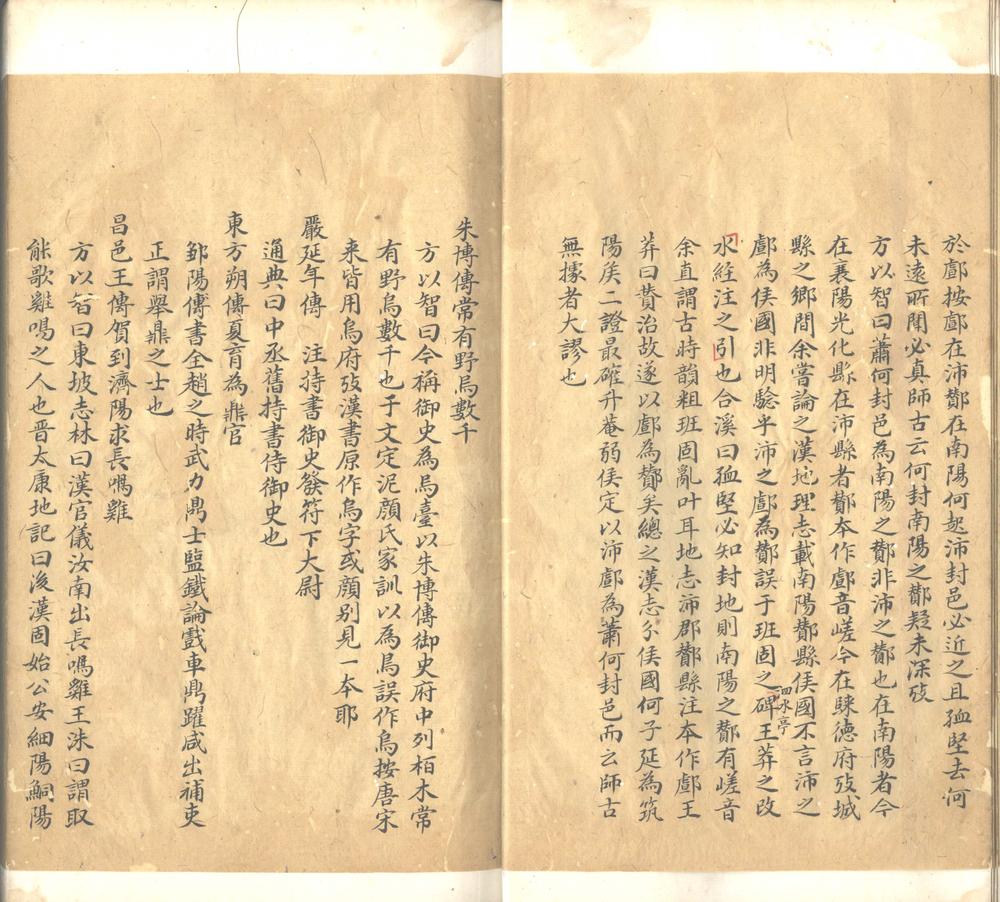 於鄌按鄌在沛酇在南陽何起沛封邑必近之且孤堅去何
未遠所聞必真師古云何封南陽之酇疑未深攷
方以智曰蕭何封邑為南陽之酇非沛之酇也在南陽者今
在襄陽光化縣在沛縣者酇本作鄌音嵯今在睐德府攷城
縣之鄉間余嘗論之漢地理志載南陽酇縣侯國不言沛之
鄌為侯國非明驗乎沛之鄌為酇誤于班固之碑王莽之改
泗水亭
水經注之引也合溪曰孤堅必知封地則南陽之酇有嵯音
余直謂古時韻粗班固亂叶耳地志沛郡酇縣注本作鄌王
莽曰贊治故遂以鄌為酇矣總之漢志分侯國何子延為筑
陽矦二證最確升菴弱侯定以沛鄌為蕭何封邑而云師古
無據者大謬也
朱博傳常有野烏數千
方以智曰今稱御史為烏臺以朱博傳御史府中列栢木常
有野烏數千也于文定泥顏氏家訓以為鳥誤作烏按唐宋
来皆用烏府攷漢書原作烏字或顏别見一本耶
嚴延年傳　注持書御史發符下大尉
通典曰中丞舊持書侍御史也
東方朔傳夏育為鼎官
鄒陽傳書全趙之時武力鼎士鹽鐵論戲車鼎躍咸出補吏
正謂舉鼎之士也
昌邑王傳賀到濟陽求長鳴雞
方以智曰東坡志林曰漢官儀汝南出長鳴雞王洙曰謂取
能歌雞鳴之人也晋太康地記曰後漢固始公安細陽鮦陽